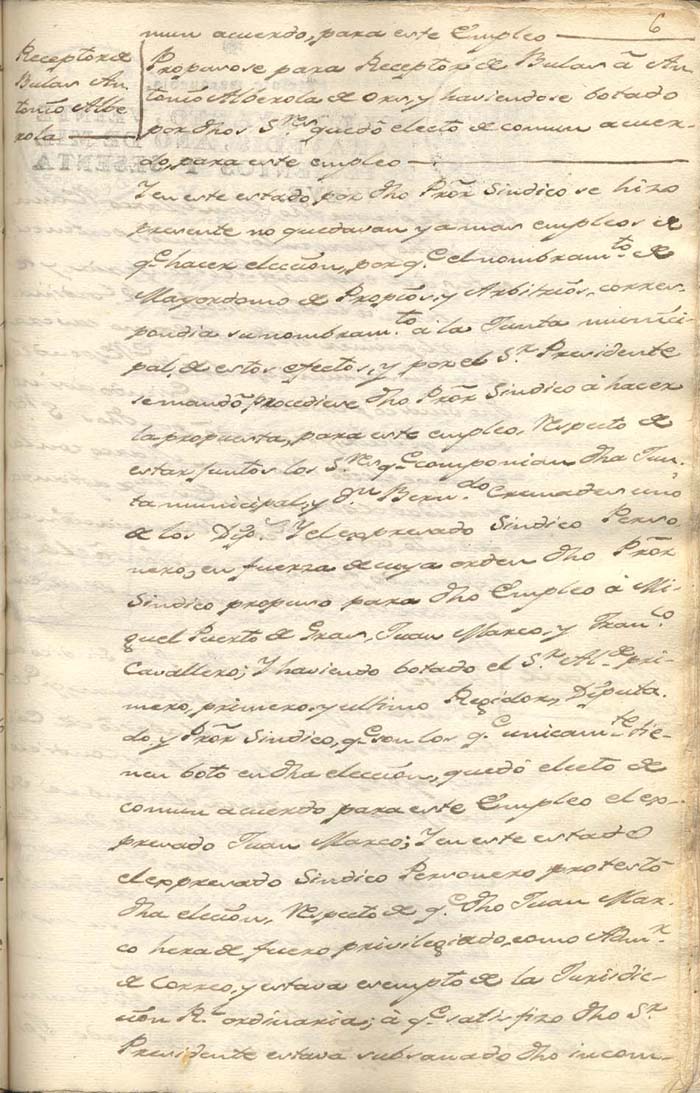 6
mun acuerdo, para este Empleo
Receptor de
Bulas An-
tonio Albe
rola
Propusose para Receptor de Bulas â An-
tonio Alberola de Ors, y haviendose botado
por dhos S.res quedô electo de comun acuer-
do, para este empleo
Y en este estado, por dho Prõr Sindico se hizo
presente no quedavan ya mas empleos de
q.e hacer elección, por q.e el nombram.to de
Mayordomo de Propios, y Arbitrios, corres-
pondia su nombram.to â la Junta munici-
pal, de estos efectos, y por el S.r Presidente
se mandô, procediese dho Prõr Sindico â hacer
la propuesta, para este empleo, Respecto de
estar juntos los S.res q.e componian dha Jun-
ta municipal, y d.n Bern.do Cremades uno
de los Dip.s Y el expresado Sindico Perso-
nero, en fuerza de cuya orden dho Prõr
Sindico propuso para dho Empleo â Mi-
guel Puerto de Gras, Juan Marco, y Fran.co
Cavallero; Y haviendo botado el S.r Al.de pri-
mero, primero, y ultimo Regidor, Diputa-
do y Prõr Sindico, q.e son los q.e unicam.te tie-
nen boto en dha elección, quedô electo de
comun acuerdo para este Empleo el ex-
presado Juan Marco; Y en este estado
el expresado Sindico Personero protestô
dha elección, Respecto de q.e dho Juan Mar-
co hera de fuero privilegiado, como Adm.r
de Correo, y estava esempto de la Jurisdic-
ción R.l ordinaria; â q.e satisfizo dho S.r
Presidente estava subsanado dho incom-